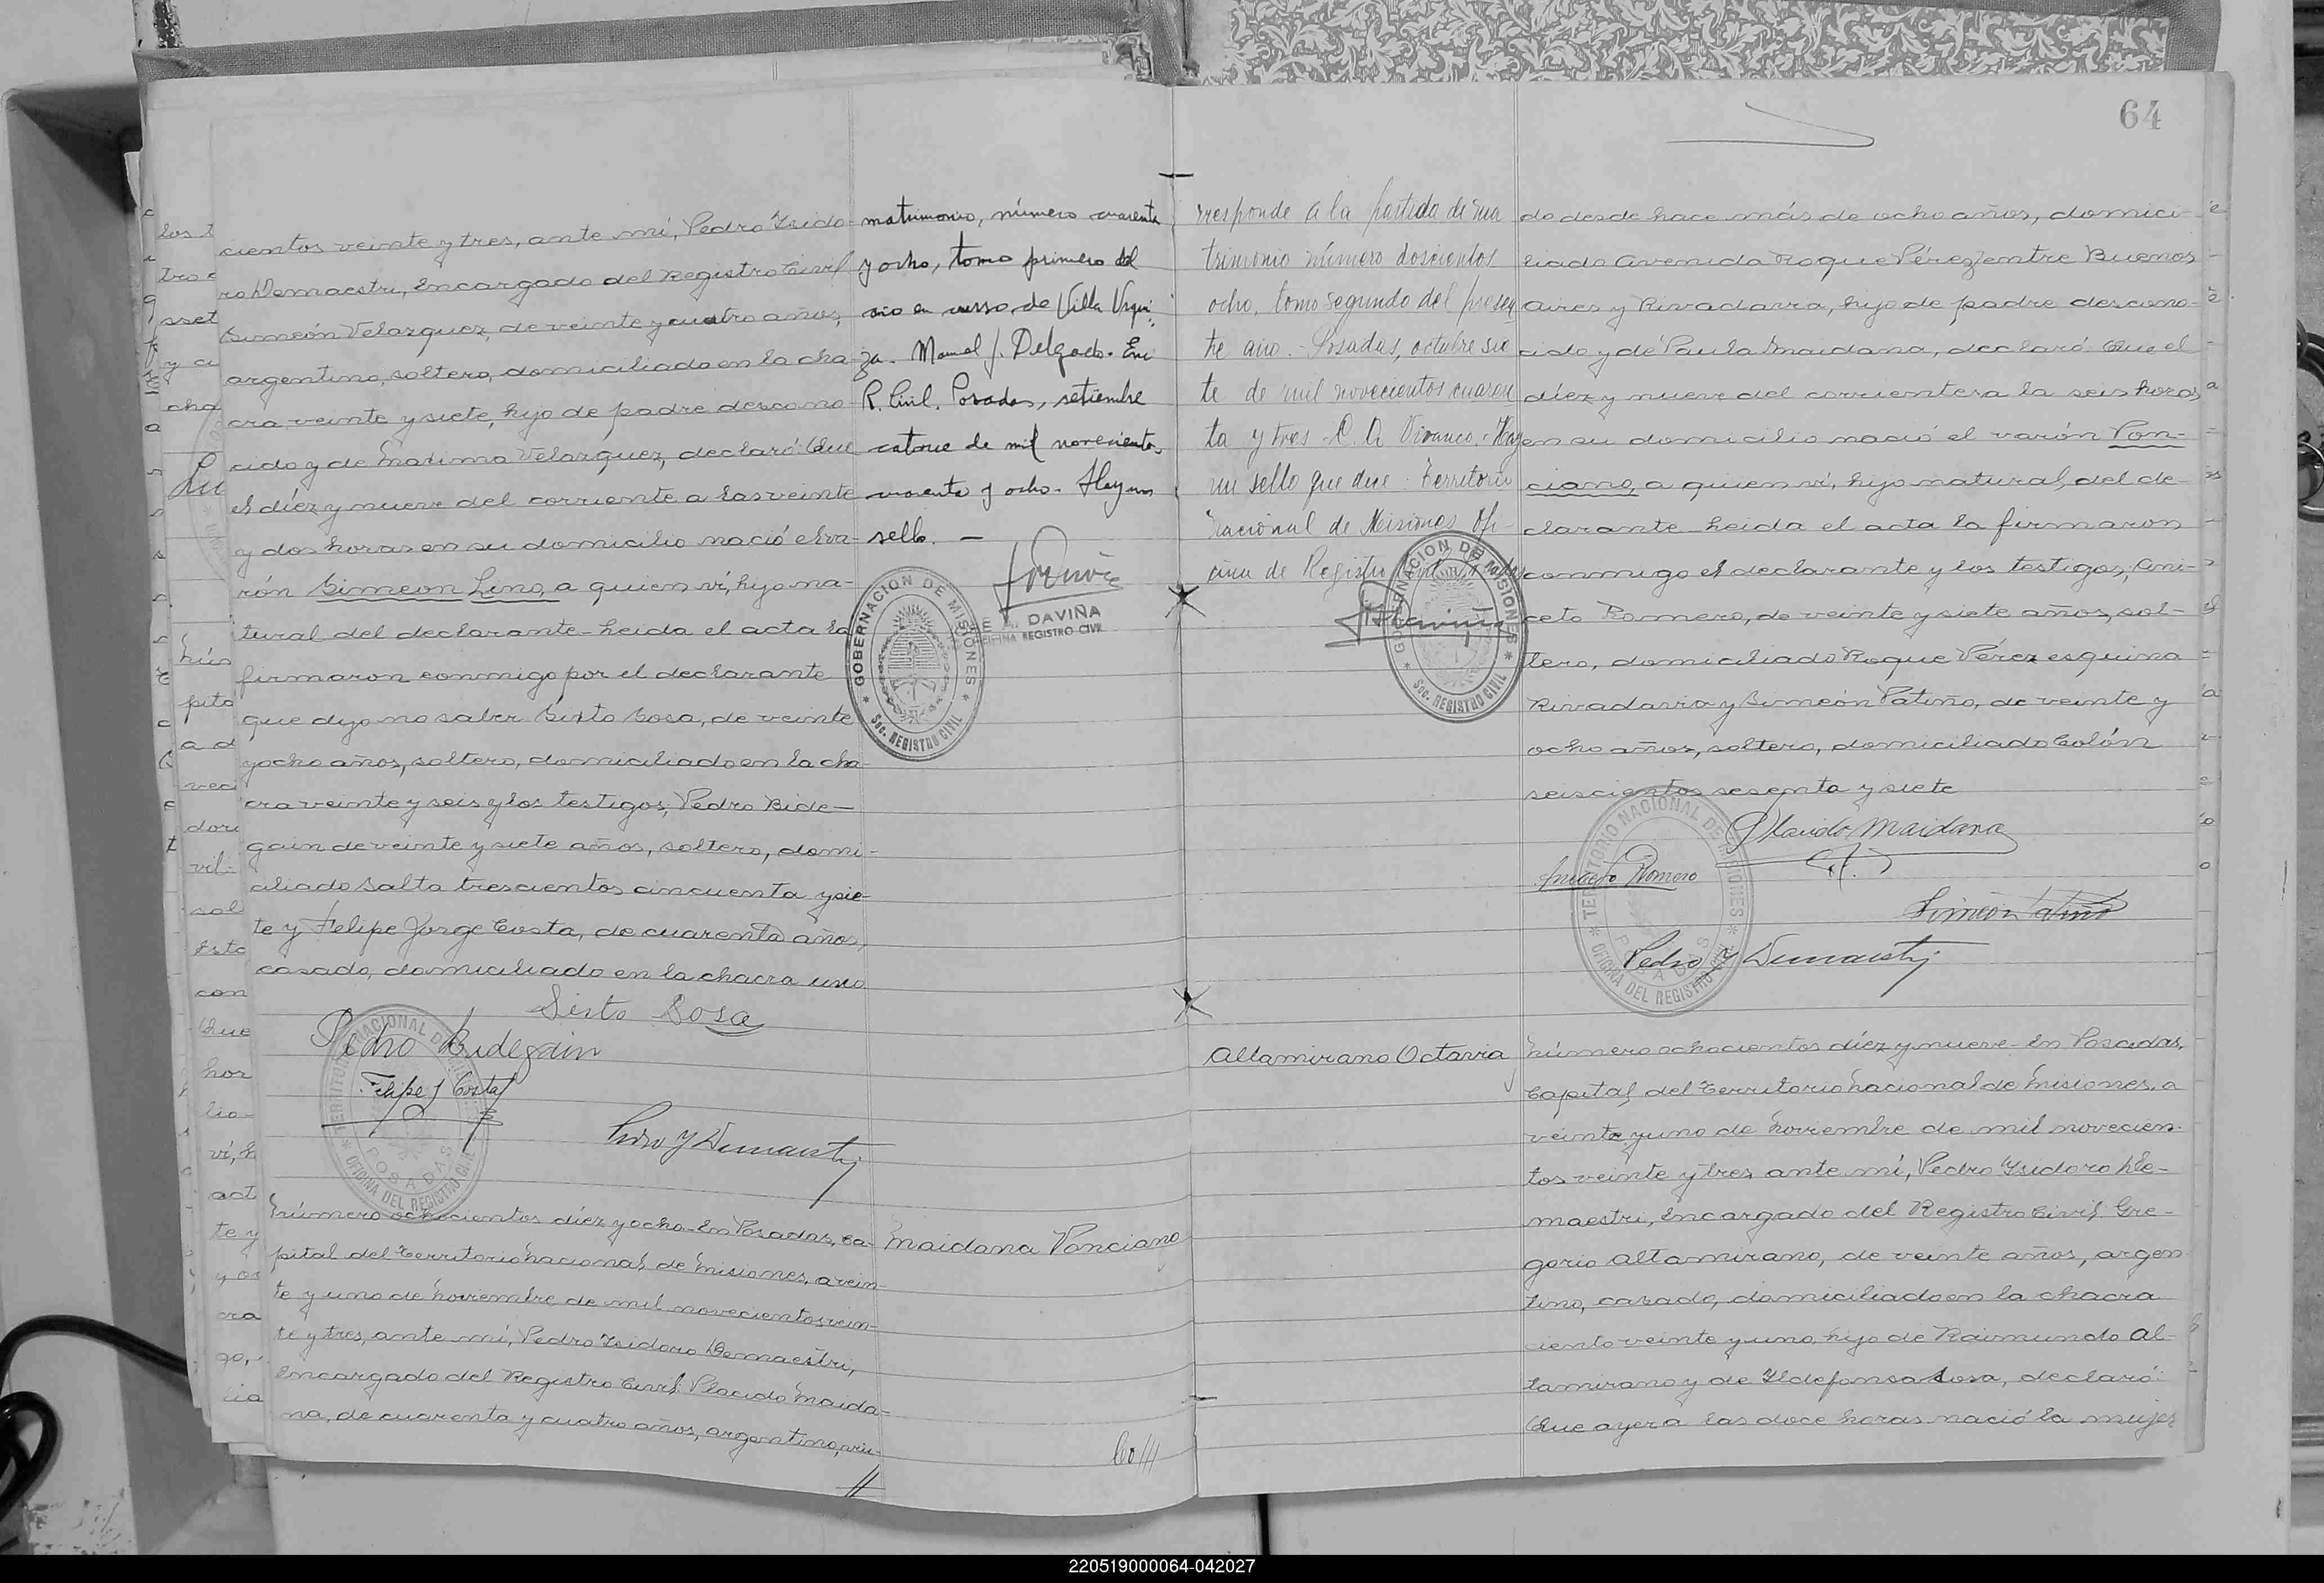 cientos veinte y tres, ante mí, Pedro Isido-
ro Demaestri, Encargado del Registro Civil
Simeón Velazquez, de veinte y cuatro años,
argentino, soltero, domiciliado en la cha-
cra veinte y siete, hijo de padre descono-
cido y de Maxima Velazquez, declaró: Que
el diéz y nueve del corriente a las veinte
y dos horas en su domicilio nació el va-
rón Simeon Lino, a quien ví, hijo na-
tural del declarante. Leida el acta la
firmaron conmigo por el declarante
que dijo no saber Sixto Sosa, de veinte
y ocho años, soltero, domiciliado en la cha-
cra veinte y seis y los testigos, Pedro Bide-
gain de veinte y siete años, soltero, domi-
ciliado Salta trescientos cincuenta y sie-
te y Felipe Jorge Costa, de cuarenta años,
casado, domiciliado en la chacra uno
Sixto Sosa
Pedro Bidegain
Felipe J Costa
Pedro Y Demaestri
TERRITORIO NACIONAL DE MISIONES
POSADAS
OFICINA DEL REGISTRO CIVIL
Número ochocientos diéz y ocho. En Posadas, ca-
pital del Territorio Nacional de Misiones, a vein-
te y uno de Noviembre de mil novecientos vein-
te y tres, ante mí, Pedro Isidoro Demaestri,
Encargado del Registro Civil Placido Maida-
na, de cuarenta y cuatro años, argentino, viu-
matrimonio, número cuarenta
y ocho, tomo primero del
año en curso, de Villa Urqui
za. Manuel J. Delgado. Enc
R. Civil. Posadas, setiembre
catorce de mil novecientos
cuarenta y ocho. Hay un
sello. —
GOBERNACION DE MISIONES
Sec. REGISTRO CIVIL
DAVIÑA
OFICINA REGISTRO CIVIL
Maidana Ponciano
Co///
64
rresponde a la partida de ma
trimonio número doscientos
ocho, tomo segundo del presen
te año. Posadas, octubre sie
te de mil novecientos cuaren
ta y tres. C. A. Vivanco. Hay
un sello que dice: Territorio
Nacional de Misiones Ofi-
cina de Registro
GOBERNACION DE MISIONES
Sec. REGISTRO CIVIL
Altamirano Octavia
do desde hace más de ocho años, domici-
liado Avenida Roque Pérez entre Buenos
Aires y Rivadavia, hijo de padre descono-
cido y de Paula Maidana, declaró: Que el
diéz y nueve del corriente a la seis horas
en su domicilio nació el varón Pon-
ciano, a quien ví, hijo natural del de-
clarante. Leida el acta la firmaron
conmigo el declarante y los testigos, Ani-
ceto Romero, de veinte y siete años, sol-
tero, domiciliado Roque Pérez esquina
Rivadavia y Simeón Patiño, de veinte y
ocho años, soltero, domiciliado Colón
seiscientos sesenta y siete
Placido Maidana
Aniceto Romero
Simeon Patiño
Pedro Y Demaestri
TERRITORIO NACIONAL DE MISIONES
POSADAS
OFICINA DEL REGISTRO CIVIL
Número ochocientos diéz y nueve. En Posadas,
Capital del Territorio Nacional de Misiones, a
veinte y uno de Noviembre de mil novecien-
tos veinte y tres, ante mí, Pedro Isidoro De-
maestri, Encargado del Registro Civil Gre-
gorio Altamirano, de veinte años, argen
tino, casado, domiciliado en la chacra
ciento veinte y uno, hijo de Raimundo Al-
tamirano y de Ildefonsa Sosa, declaró:
Que ayer a las doce horas nació la mujer
220519000064-042027